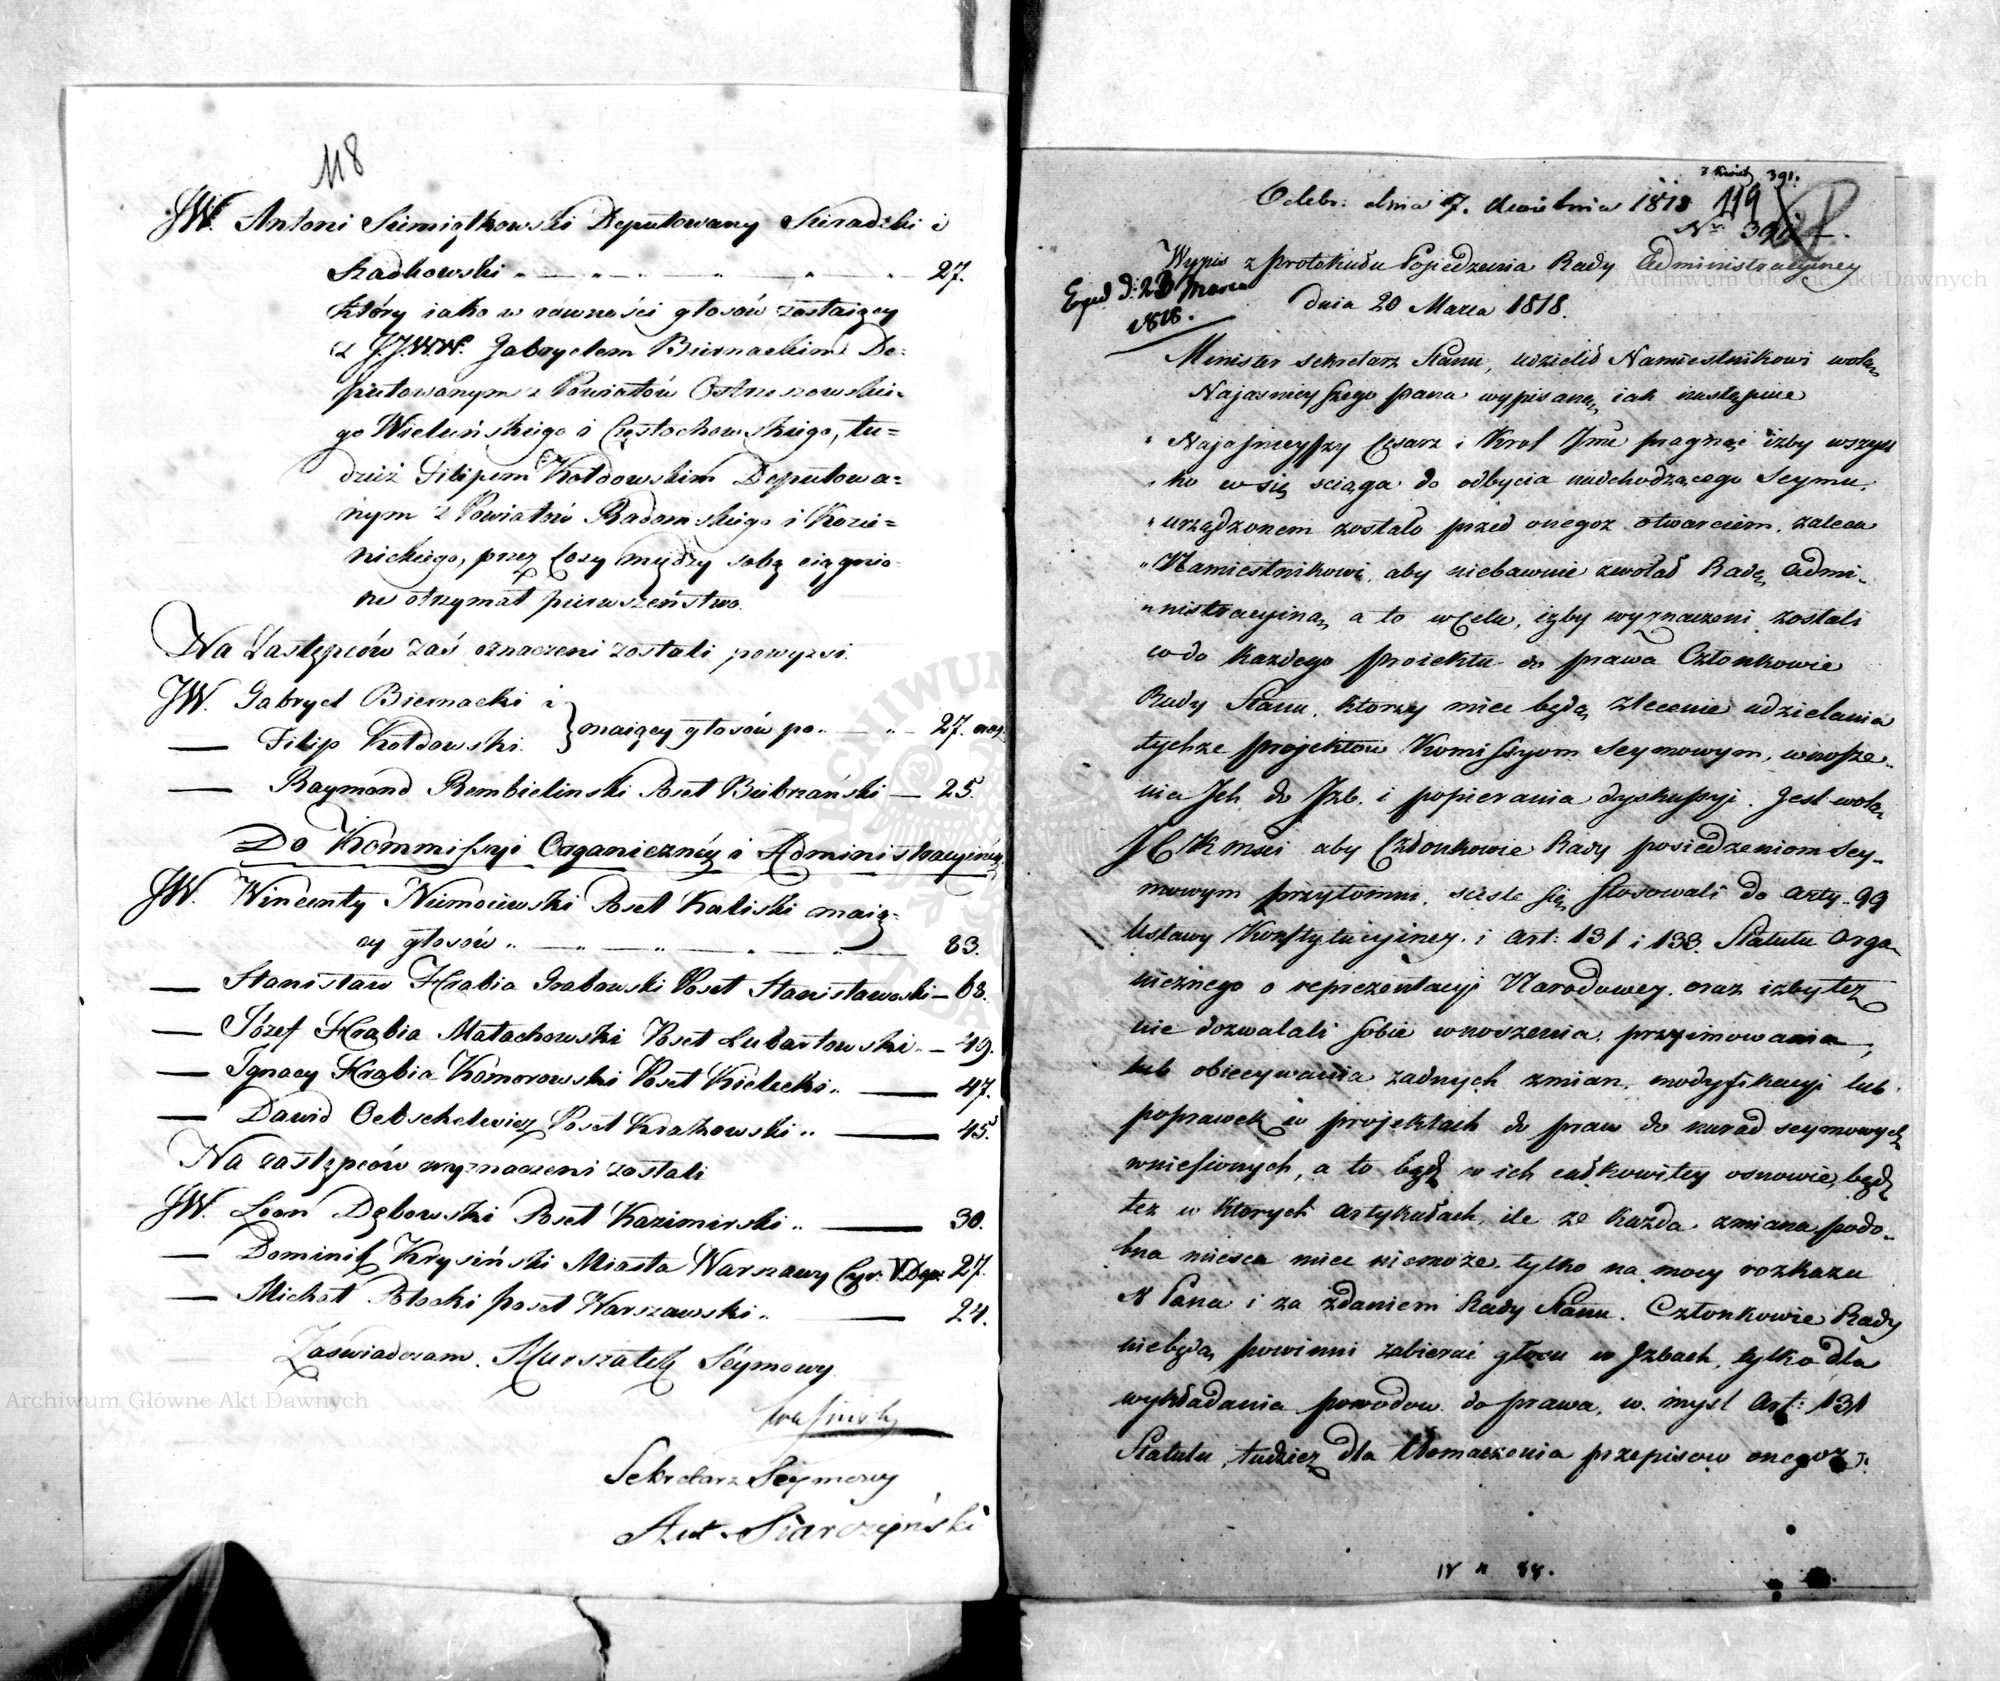 118
JW. Antoni Siemiątkowski Deputowany Sieradzki i
Szadkowski „ — „ — „ — „ — 27.
który iako w równości głosów zostaiący
z JJ.WW. Gabryelem Biernackim De=
putowanym z Powiatów Ostrzeszowskie-
go Wieluńskiego i Częstochowskiego, tu=
dzież Filipem Kołdowskim Deputowa=
nym z Powiatów Radomskiego i Kozie=
nickiego, przez Losy między sobą ciągnio-
ne otrzymał pierwszeństwo.
Na Zastępców zaś oznaczeni zostali powyżsi.
JW. Gabryel Biernacki i
— Filip Kołdowski. } maiący głosów po „ — „ — 27.
— Raymond Rembieliński Poseł Biebrzański — 25.
Do Kommissyi Organiczney i Administracyiney
JW. Wincenty Niemoiewski Poseł Kaliski maią=
cy głosów „ — „ — „ — „ — 83.
— Stanisław Hrabia Grabowski Poseł Stanisławowski — 68.
— Józef Hrabia Małachowski Poseł Lubartowski — 49.
— Ignacy Hrabia Komorowski Poseł Kielecki „ — 47.
— Dawid Oebschelwicz Poseł Krakowski „ — 45.
Na zastępców wyznaczeni zostali
JW. Leon Dębowski Poseł Kazimirski „ — 30.
— Dominik Krysiński Miasta Warszawy Cyr: V. Dep: 27.
— Michał Potocki Poseł Warszawski „ — 24.
Zaświadczam. Marszałek Seymowy
Krasiński
Sekretarz Seymowy
Ant. Starczyński
7 Kwiet 391.
Odebr: dnia 7. Kwietnia 1818 119
Nro 391
Wypis z protokułu Posiedzenia Rady Administracyiney
Exped d: 23 Marca
1818.
dnia 20 Marca 1818.
Minister Sekretarz Stanu, udzielił Namiestnikowi wolą
Najasnieyszego Pana wypisaną iak następuie
„ Najasnieyszy Cesarz i Krol Jmć pragnąc izby wszyst
„ ko co się sciąga do odbycia nadchodzącego Seymu,
„ urządzonem zostało przed onegoz otwarciem, zaleca
„ Namiestnikowi, aby niebawnie zwołał Radę Admi-
„ nistracyiną, a to w Celu, izby wyznaczeni zostali
co do kazdego proiektu do prawa Członkowie
Rady Stanu, ktorzy miec będą zlecenie udzielania
tychze projektow Kommissyom Seymowym, wnosze-
nia Jch do Jzb i popierania dyskussyi. Jest wolą
J C K Mści aby Członkowie Rady posiedzeniom Sey-
mowym przytomni, scisle się stosowali do arty. 99
Ustawy Konstytucyiney, i art: 131 i 133. Statutu Orga-
nicznego o reprezentacyi Narodowey, oraz izby tez
nie dozwalali sobie wnoszenia, przyimowania,
lub obiecywania zadnych zmian, modyfikacyi lub
poprawek w projektach do praw do narad seymowych
wniesionych, a to bądz w ich całkowitey osnowie, bądz
tez w ktorych artykułach, ile ze kazda zmiana podo-
bna mieysca miec niemoze, tylko na mocy rozkazu
N Pana i za zdaniem Rady Stanu. Członkowie Rady
niebędą powinni zabierać głosu w Jzbach, tylko dla
wykładania powodow do prawa, w mysl Art: 131
Statutu, tudziez dla tłomaczenia przepisow onegoz
Archiwum Główne Akt Dawnych
Archiwum Główne Akt Dawnych